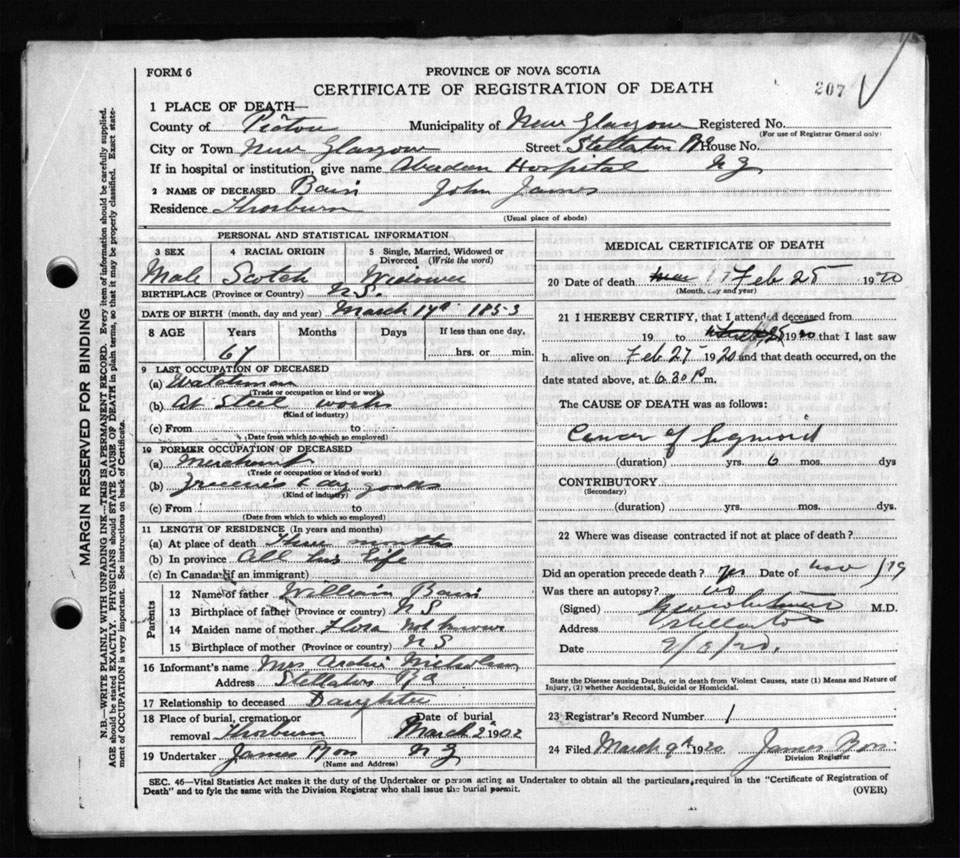 FORM 6
PROVINCE OF NOVA SCOTIA
CERTIFICATE OF REGISTRATION OF DEATH
207
1 PLACE OF DEATH—
County of Pictou Municipality of New Glasgow Registered No.
(For use of Registrar General only)
City or Town New Glasgow Street Stellarton Rd House No.
If in hospital or institution, give name Aberdeen Hospital N G
2 NAME OF DECEASED Bain John James
Residence Thorburn
(Usual place of abode)
PERSONAL AND STATISTICAL INFORMATION
3 SEX 4 RACIAL ORIGIN 5 Single, Married, Widowed or Divorced (Write the word)
Male Scotch Widower
BIRTHPLACE (Province or Country) N S.
DATE OF BIRTH (month, day and year) March 14th 1853
8 AGE Years Months Days If less than one day,
67 hrs. or min.
9 LAST OCCUPATION OF DECEASED
(a) Watchman
(Trade or occupation or kind of work)
(b) At Steel works
(Kind of industry)
(c) From to
(Date from which to which so employed)
10 FORMER OCCUPATION OF DECEASED
(a) Merchant
(Trade or occupation or kind of work)
(b) Groceries & dry goods
(Kind of industry)
(c) From to
(Date from which to which so employed)
11 LENGTH OF RESIDENCE (In years and months)
(a) At place of death Three months
(b) In province All his life
(c) In Canada (if an immigrant)
Parents
12 Name of father William Bain
13 Birthplace of father (Province or Country) N S
14 Maiden name of mother Flora not known
15 Birthplace of mother (Province or Country) N S
16 Informant's name Mrs Archie Nicholson
Address Stellarton Rd
17 Relationship to deceased Daughter
18 Place of burial, cremation or removal Thorburn Date of burial March 2 1902
19 Undertaker James Ross N G
(Name and Address)
MEDICAL CERTIFICATE OF DEATH
20 Date of death Feb 25 1920
(Month, day and year)
21 I HEREBY CERTIFY, that I attended deceased from
19 to 1920 that I last saw
h alive on Feb 27 1920 and that death occurred, on the
date stated above, at 6.30 P m.
The CAUSE OF DEATH was as follows:
Cancer of Sigmoid
(duration) yrs. 6 mos. dys
CONTRIBUTORY
(Secondary)
(duration) yrs. mos. dys.
22 Where was disease contracted if not at place of death?
Did an operation precede death? yes Date of nov /19
Was there an autopsy? no
(Signed) M.D.
Address Stellarton
Date
State the Disease causing Death, or in death from Violent Causes, state (1) Means and Nature of
Injury, (2) whether Accidental, Suicidal or Homicidal.
23 Registrar's Record Number 1
24 Filed March 9th 1920 James Ross
Division Registrar
SEC. 46—Vital Statistics Act makes it the duty of the Undertaker or person acting as Undertaker to obtain all the particulars required in the "Certificate of Registration of
Death" and to fyle the same with the Division Registrar who shall issue the burial permit.
(OVER)
MARGIN RESERVED FOR BINDING
N.B.—WRITE PLAINLY WITH UNFADING INK—THIS IS A PERMANENT RECORD. Every item of information should be carefully supplied.
AGE should be stated EXACTLY. PHYSICIANS should STATE CAUSE OF DEATH in plain terms, so that it may be properly classified. Exact state-
ment of OCCUPATION is very important. See instructions on back of Certificate.